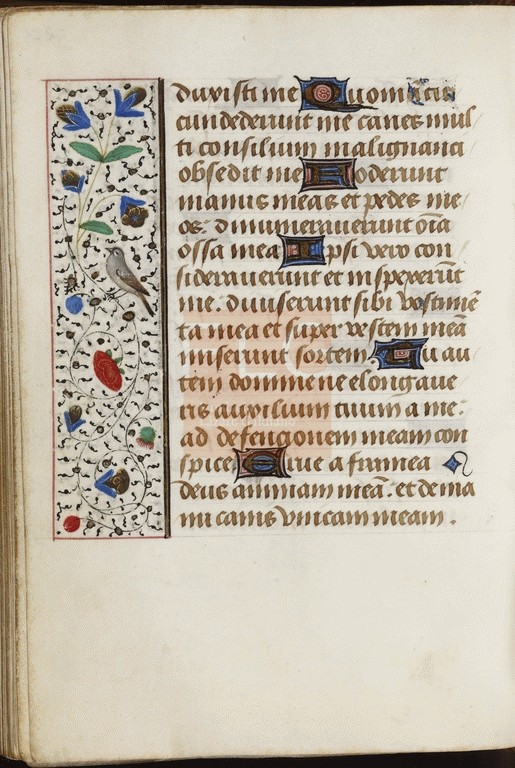 duxisti me Quoniā cir
cundederunt me canes mul
ti consilium malignanci
obsedit me Foderunt
manus meas et pedes me
os. dinumeraverunt oīa
ossa mea Ipsi vero con
sideraverunt et inspexerūt
me. diviserunt sibi vestimē
ta mea et super vestem meā
miserunt sortem. Tu au
tem domine ne elongave
ris auxilium tuum a me:
ad defencionem meam con
spice Erue a framea
deus animam meā. et de ma
nu canis unicam meam.